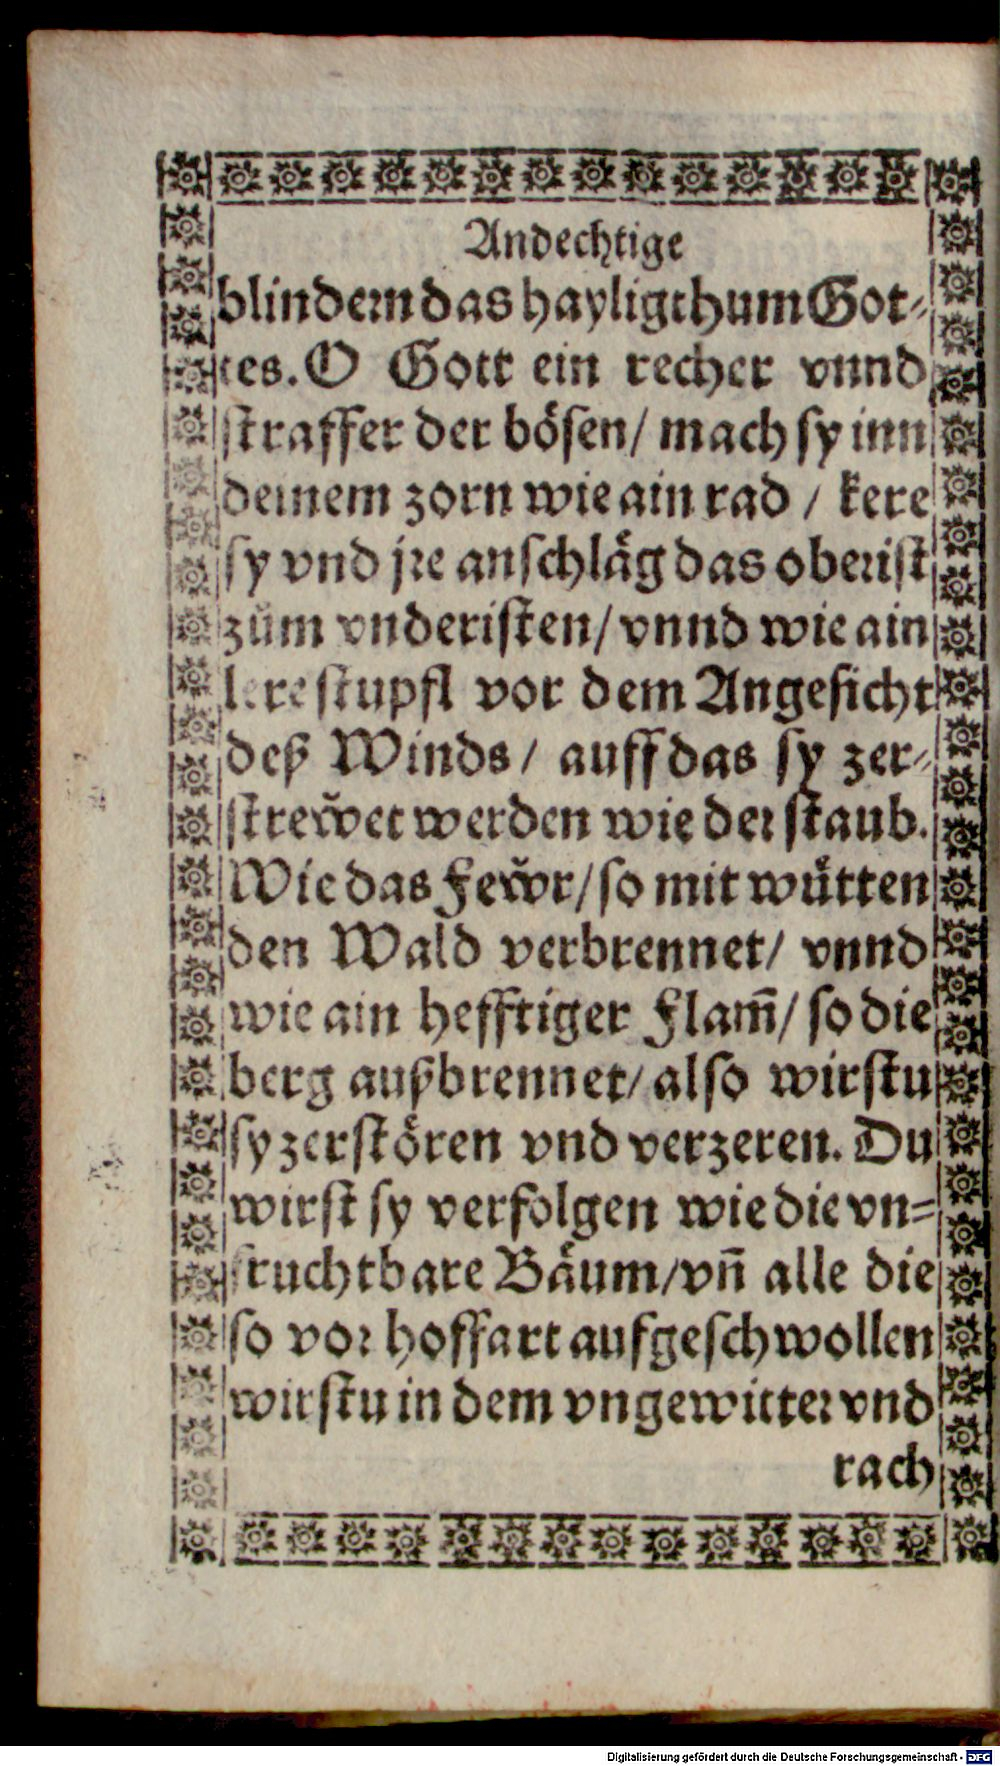 Andechtige
blindern das hayligthum Got-
tes. O Gott ein recher vnnd
straffer der bösen/ mach sy inn
deinem zorn wie ain rad / kere
sy vnd jre anschläg das oberist
zům vnderisten/ vnnd wie ain
lere stupfl vor dem Angesicht
deß Winds/ auff das sy zer-
strewet werden wie der staub.
Wie das Fewr/ so mit wütten
den Wald verbrennet/ vnnd
wie ain hefftiger Flam̃/ so die
berg außbrennet/ also wirstu
sy zerstören vnd verzeren. Du
wirst sy verfolgen wie die vn=
fruchtbare Bäum/ vñ alle die
so vor hoffart aufgeschwollen
wirstu in dem vngewitter vnd
rach
Digitalisierung gefördert durch die Deutsche Forschungsgemeinschaft - DFG